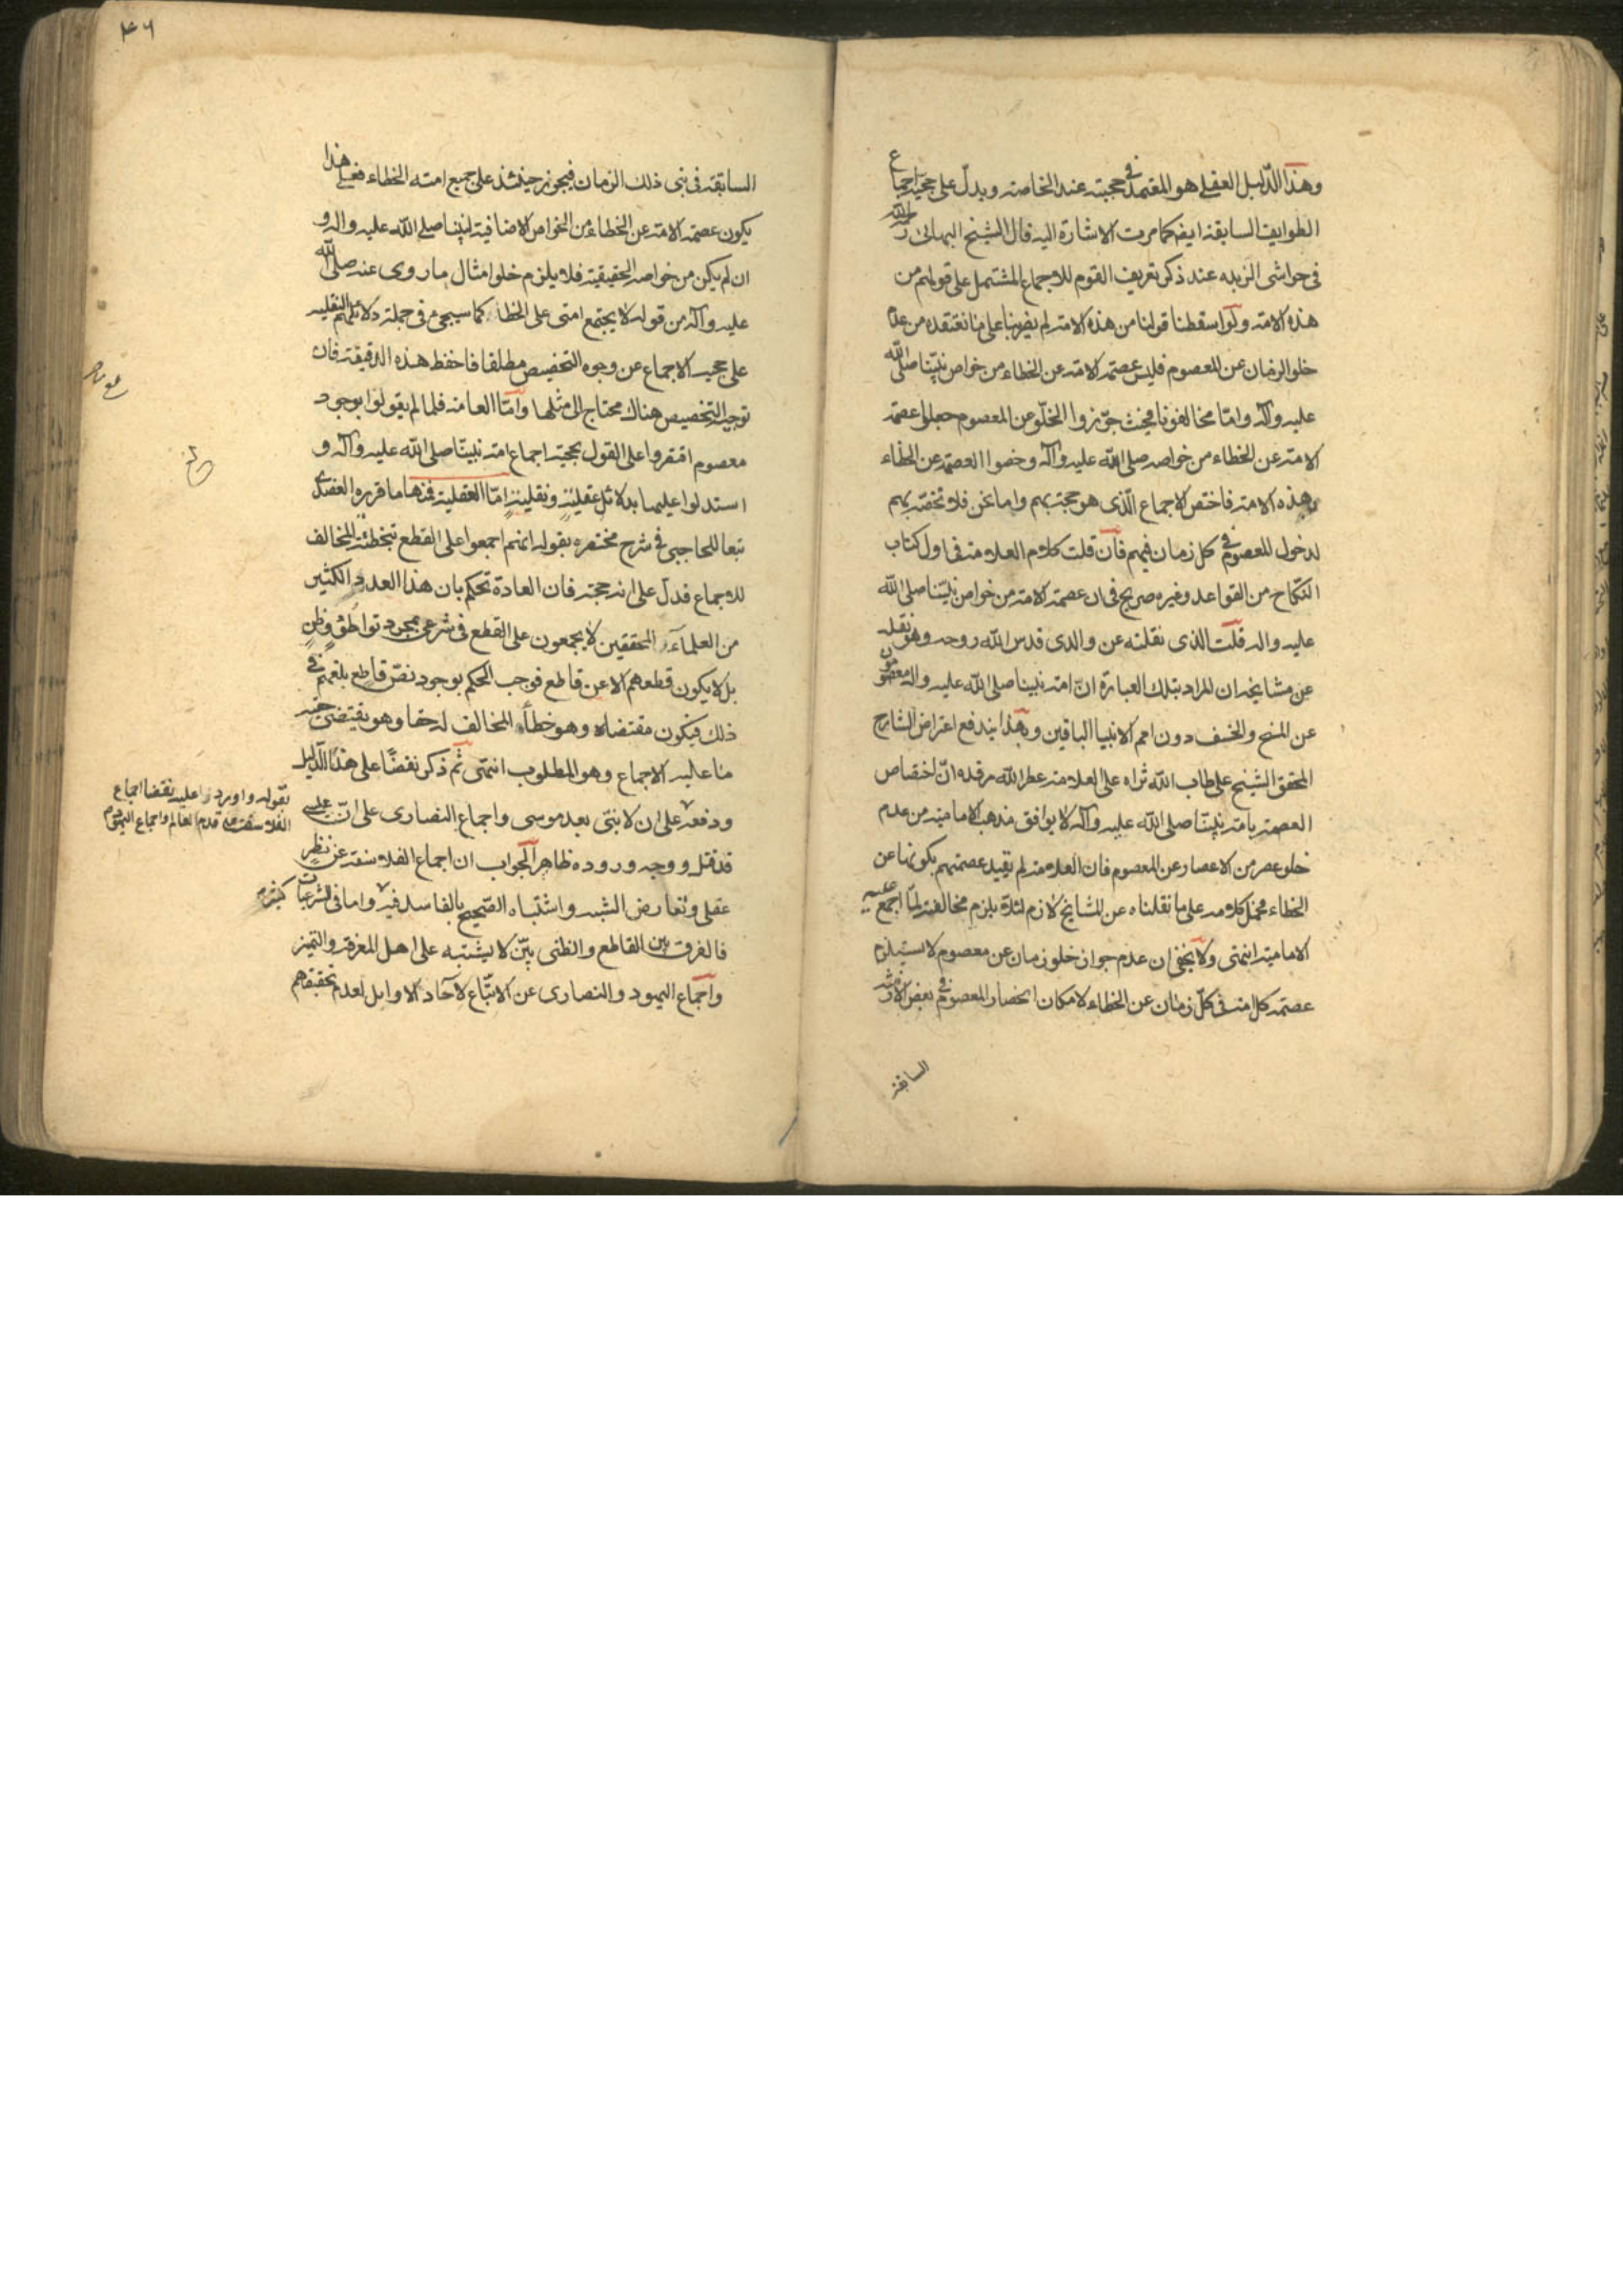 وهذا الدّليل العقلي هو المعتمد في حجيته عند الخاصة ويدلّ على حجية اجماع
الطوايف السابقة ايضا كما مرت الاشارة اليه قال الشيخ البهائى رحمه الله
فى حواشى الزبده عند ذكر تعريف القوم للاجماع المشتمل على قولهم من
هذه الامة ولو اسقطنا قولنا من هذه الامة لم يضرنا على ما نعتقده من عدم
خلو الزمان عن المعصوم فليس عصمة الامة عن الخطاء من خواص نبيّنا صلى الله
عليه وآله وامّا مخالفونا فحيث جوّزوا الخلّو عن المعصوم جعلوا عصمة
الامة عن الخطاء من خواصه صلى الله عليه وآله وخصوا العصمة عن الخطاء
بهذه الامة فاختص الاجماع الّذى هو حجة بهم واما نحن فلا نخصّه بهم
لدخول المعصوم في كل زمان فيهم فان قلت كلام العلامة فى اول كتاب
النّكاح من القواعد وغيره صريح فى ان عصمة الامة من خواص نبيّنا صلى الله
عليه واله قلت الذى نقلته عن والدى قدس الله روحه وهو نقله
عن مشايخه ان المراد بتلك العبارة انّ امة نبينا صلى الله عليه واله معصومون
عن المسخ والخسف دون امم الانبيا الباقين وبهذا يندفع اعتراض الشارح
المحقق الشيخ على طاب الله ثراه على العلامة عطر الله مرقده انّ اختصاص
العصمة بامة نبيّنا صلى الله عليه وآله لا يوافق مذهب الامامية من عدم
خلو عصر من الاعصار عن المعصوم فان العلامة لم يقيد عصمتهم بكونها عن
الخطاء فحمل كلامه على ما نقلناه عن المشايخ لازم لئلا يلزم مخالفته لما اجمع عليه
الامامية انتهى ولا يخفى ان عدم جواز خلو زمان عن معصوم لا يستلزم
عصمة كل امة فى كلّ زمان عن الخطاء لامكان انحصار المعصوم في بعض الازمنة
السابقة
٤٦
السابقة فى نبى ذلك الزمان فيجوز حينئذ على جميع امته الخطاء فعلى هذا
يكون عصمة الامة عن الخطاء من الخواص الاضافية لنبينا صلى الله عليه واله و
ان لم يكن من خواصه الحقيقية فلا يلزم خلو امثال ما روى عنه صلى الله
عليه وآله من قوله لا يجتمع امتى على الخطأ كما سيجئ فى جملة دلائلهم النقليه
على حجية الاجماع عن وجوه التخصيص مطلقا فاحفظ هذه الدقيقة فان
توجيه التخصيص هناك محتاج الى مثلها وامّا العامة فلما لم يقولوا بوجود
معصوم اقتصروا على القول بحجية اجماع امة نبيّنا صلى الله عليه وآله و
استدلوا عليها بدلائل عقلية ونقلية امّا العقلية فمنها ما قرره العضدى
تبعا للحاجبى فى شرح مختصره بقوله انهم اجمعوا على القطع بتخطئة المخالف
للاجماع فدلّ على انه حجة فان العادة تحكم بان هذا العدد الكثير
من العلماء المحققين لا يجمعون على القطع فى شرعى بمجرد تواطؤ وظن
بل لا يكون قطعهم الا عن قاطع فوجب الحكم بوجود نصّ قاطع بلغهم في
ذلك فيكون مقتضاه وهو خطأ المخالف له حقا وهو يقتضى حقية
ما عليه الاجماع وهو المطلوب انتهى ثم ذكر نقضًا على هذا الدّليل
ودفعه على ان لا نبى بعد موسى واجماع النصارى على انّ عيسى
قد قتل ووجه وروده ظاهر الجواب ان اجماع الفلاسفة عن نظر
عقلى وتعارض الشبه واشتباه الصّحيح بالفاسد فيه واما فى الشرعيات كثير
فالفرق بين القاطع والظنى بيّن لا يشتبه على اهل المعرفة والتميز
واجماع اليهود والنصارى عن الاتّباع لآحاد الاوايل لعدم تحقيقهم
بقوله واورد عليه نقضا اجماع
الفلاسفة على قدم العالم واجماع اليهود